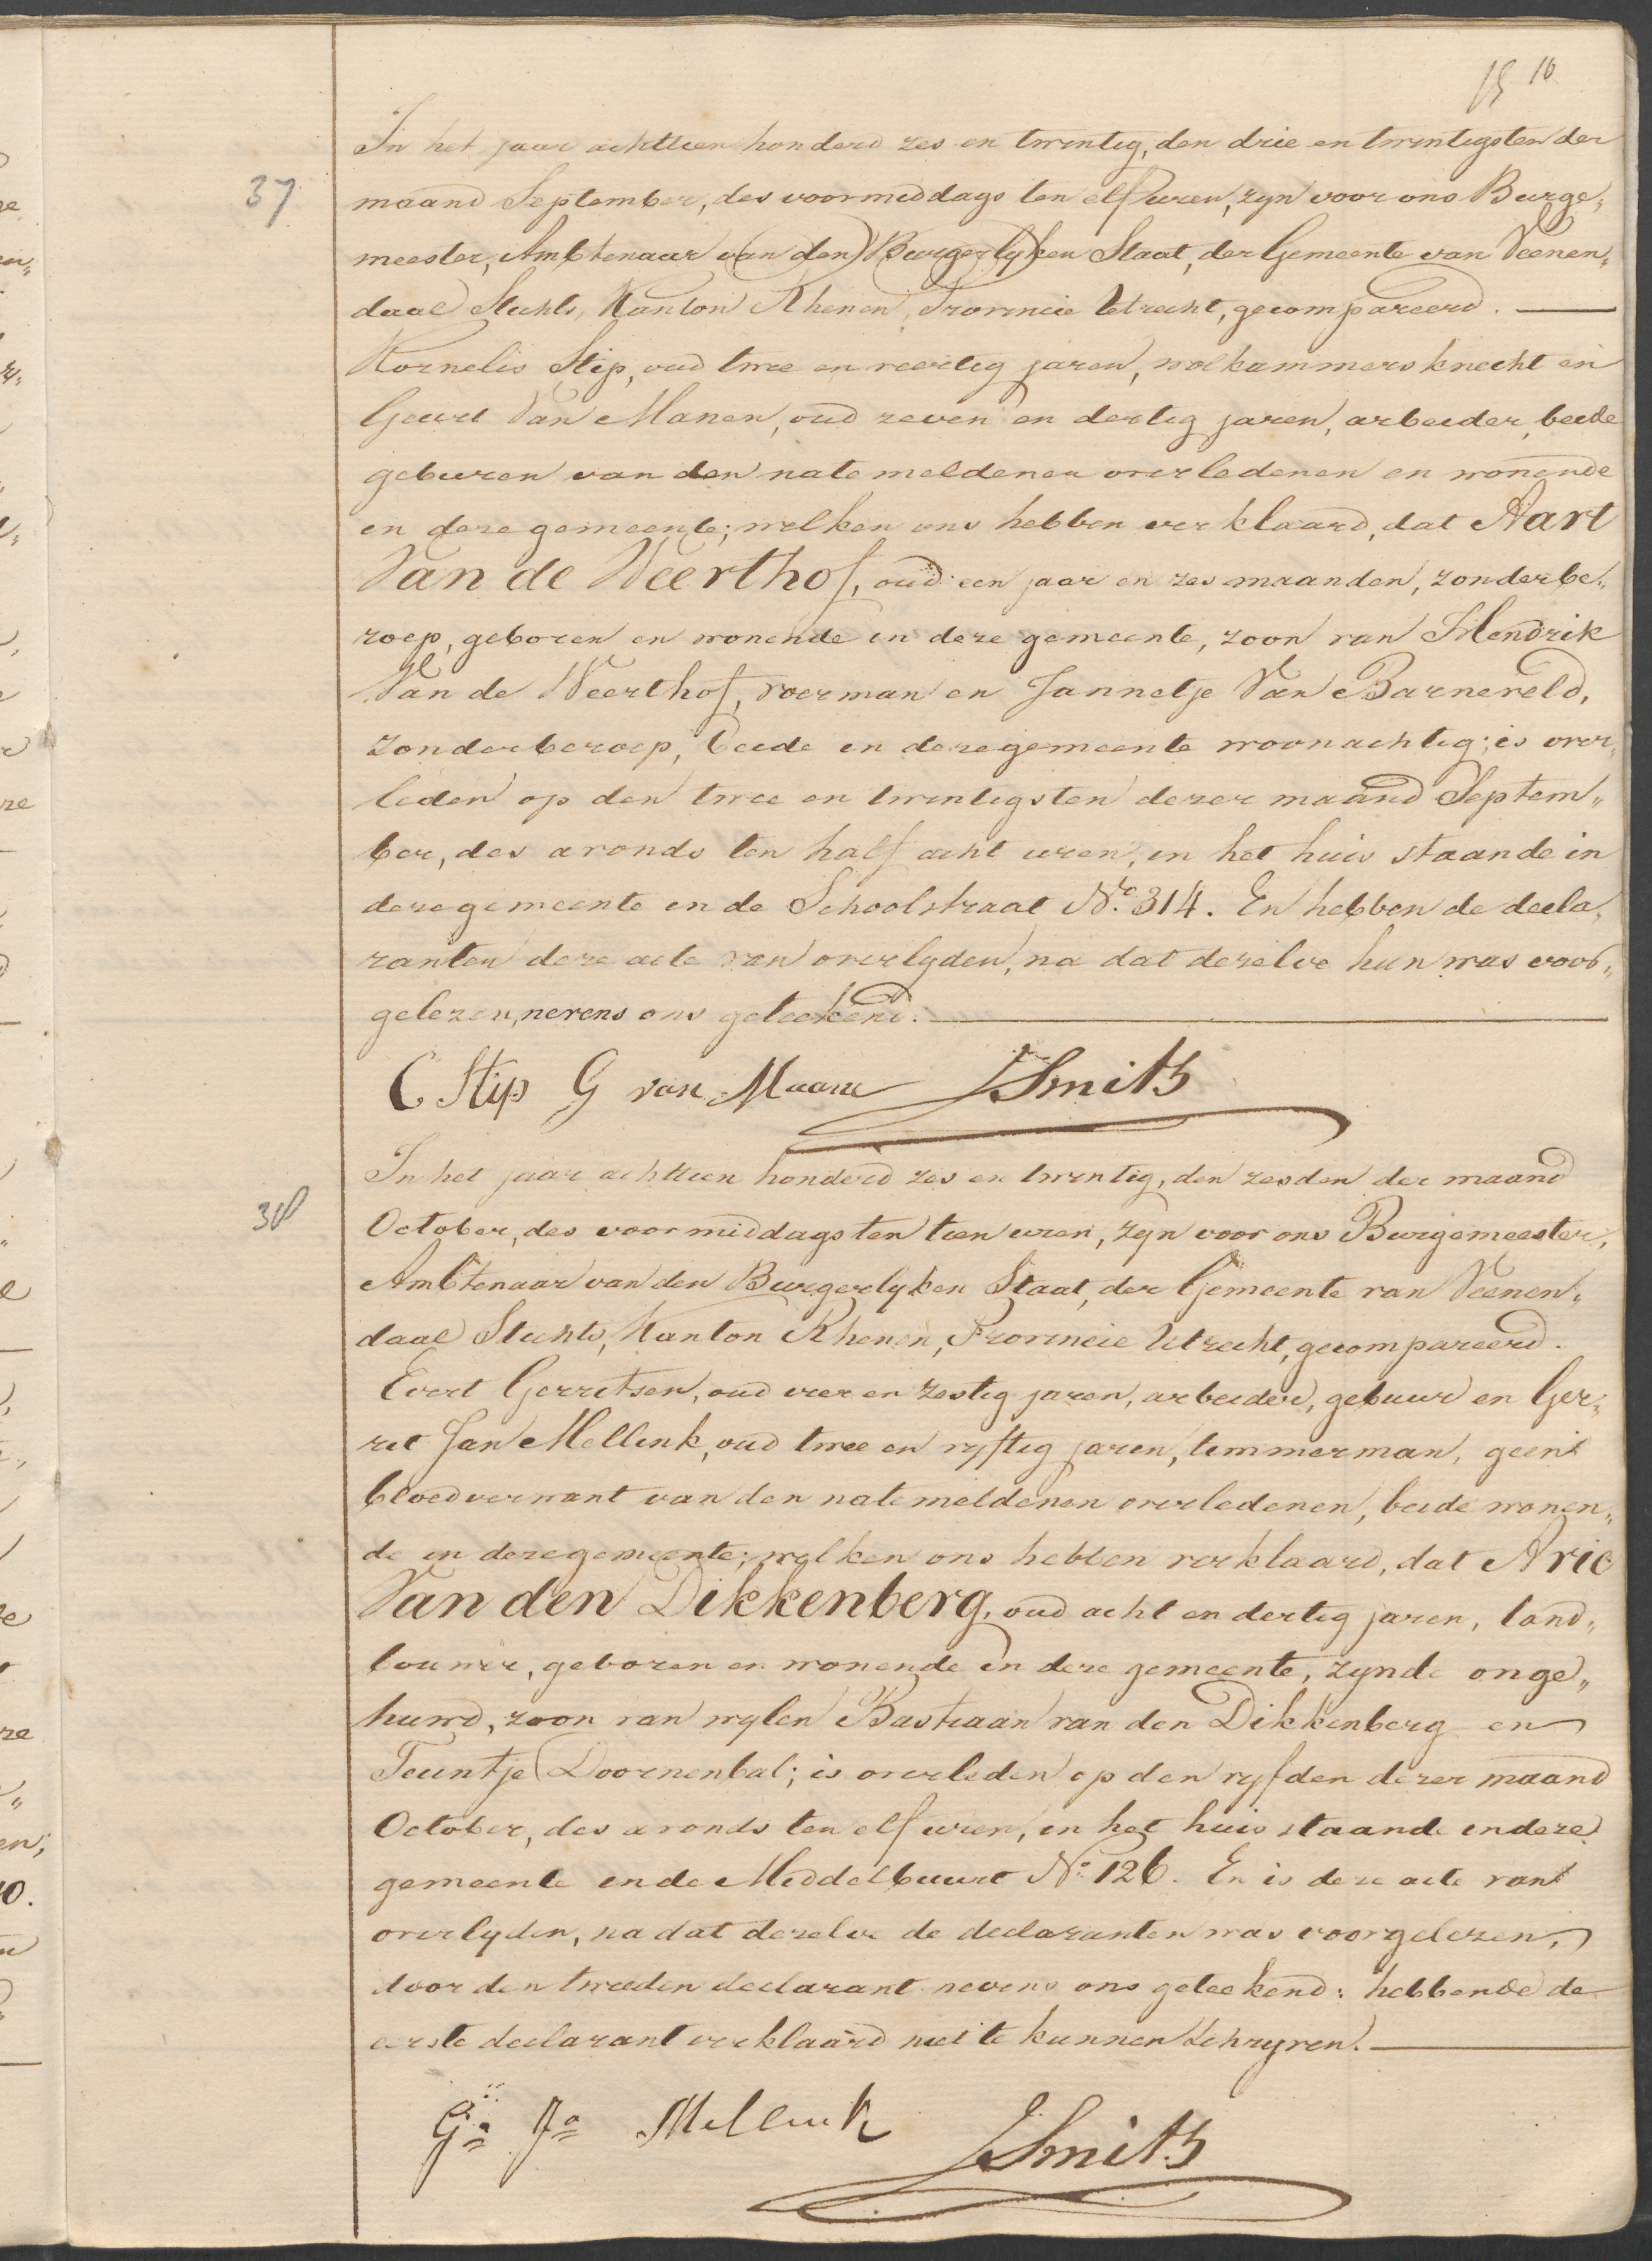 16
In het jaar achttien honderd zes en twintig, den drie en twintigsten der
37
maand September, des voormiddags ten elf uren, zyn voor ons Burge„
meester, Ambtenaar van den Burgerlyken Staat, der Gemeente van Veenen„
daal Stichts, Kanton Rhenen, Provincie Utrecht, gecompareerd.
Kornelis Stip, oud twee en veertig jaren, wolkammersknecht en
Geurt Van Manen, oud zeven en dertig jaren, arbeider, beide
geburen van den natemeldenen overledenen en wonende
in deze gemeente; welken ons hebben verklaard, dat Aart
Van de Weerthof, oud een jaar en zes maanden, zonder be„
roep, geboren en wonende in deze gemeente, zoon van Hendrik
Van de Weerthof, voerman en Jannetje Van Barneveld,
zonder beroep, beide in deze gemeente woonachtig; is over„
leden op den twee en twintigsten dezer maand Septem„
ber, des avonds ten half acht uren, in het huis staande in
deze gemeente in de Schoolstraat No. 314. En hebben de decla„
ranten deze acte van overlyden, na dat dezelve hun was voor„
gelezen, nevens ons geteekend.
C Stip G van Maane Smits
In het jaar achttien honderd zes en twintig, den zesden der maand
38
October, des voormiddags ten tien uren, zyn voor ons Burgemeester,
Ambtenaar van den Burgerlyken Staat, der Gemeente van Veenen„
daal Stichts, Kanton Rhenen, Provincie Utrecht, gecompareerd.
Evert Gerritsen, oud vier en zestig jaren, arbeider, gebuur en Ger„
rit Jan Mellink, oud twee en vyftig jaren, timmerman, geen
bloedverwant van den natemeldenen overledenen, beide wonen„
de in deze gemeente; welken ons hebben verklaard, dat Arie
Van den Dikkenberg, oud acht en dertig jaren, land„
bouwer, geboren en wonende in deze gemeente, zynde onge„
huwd, zoon van wylen Bastiaan van den Dikkenberg en
Teuntje Doornenbal; is overleden op den vyfden dezer maand
October, des avonds ten elf uren, in het huis staande in deze
gemeente in de Middelbuurt No. 126. En is deze acte van
overlyden, na dat dezelve de declaranten was voorgelezen,
door den tweeden declarant nevens ons geteekend: hebbende de
eerste declarant verklaard niet te kunnen schryven.
Gt Jn Mellink Smits